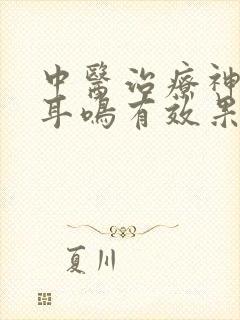 中醫治療神
耳鳴有效果
夏川